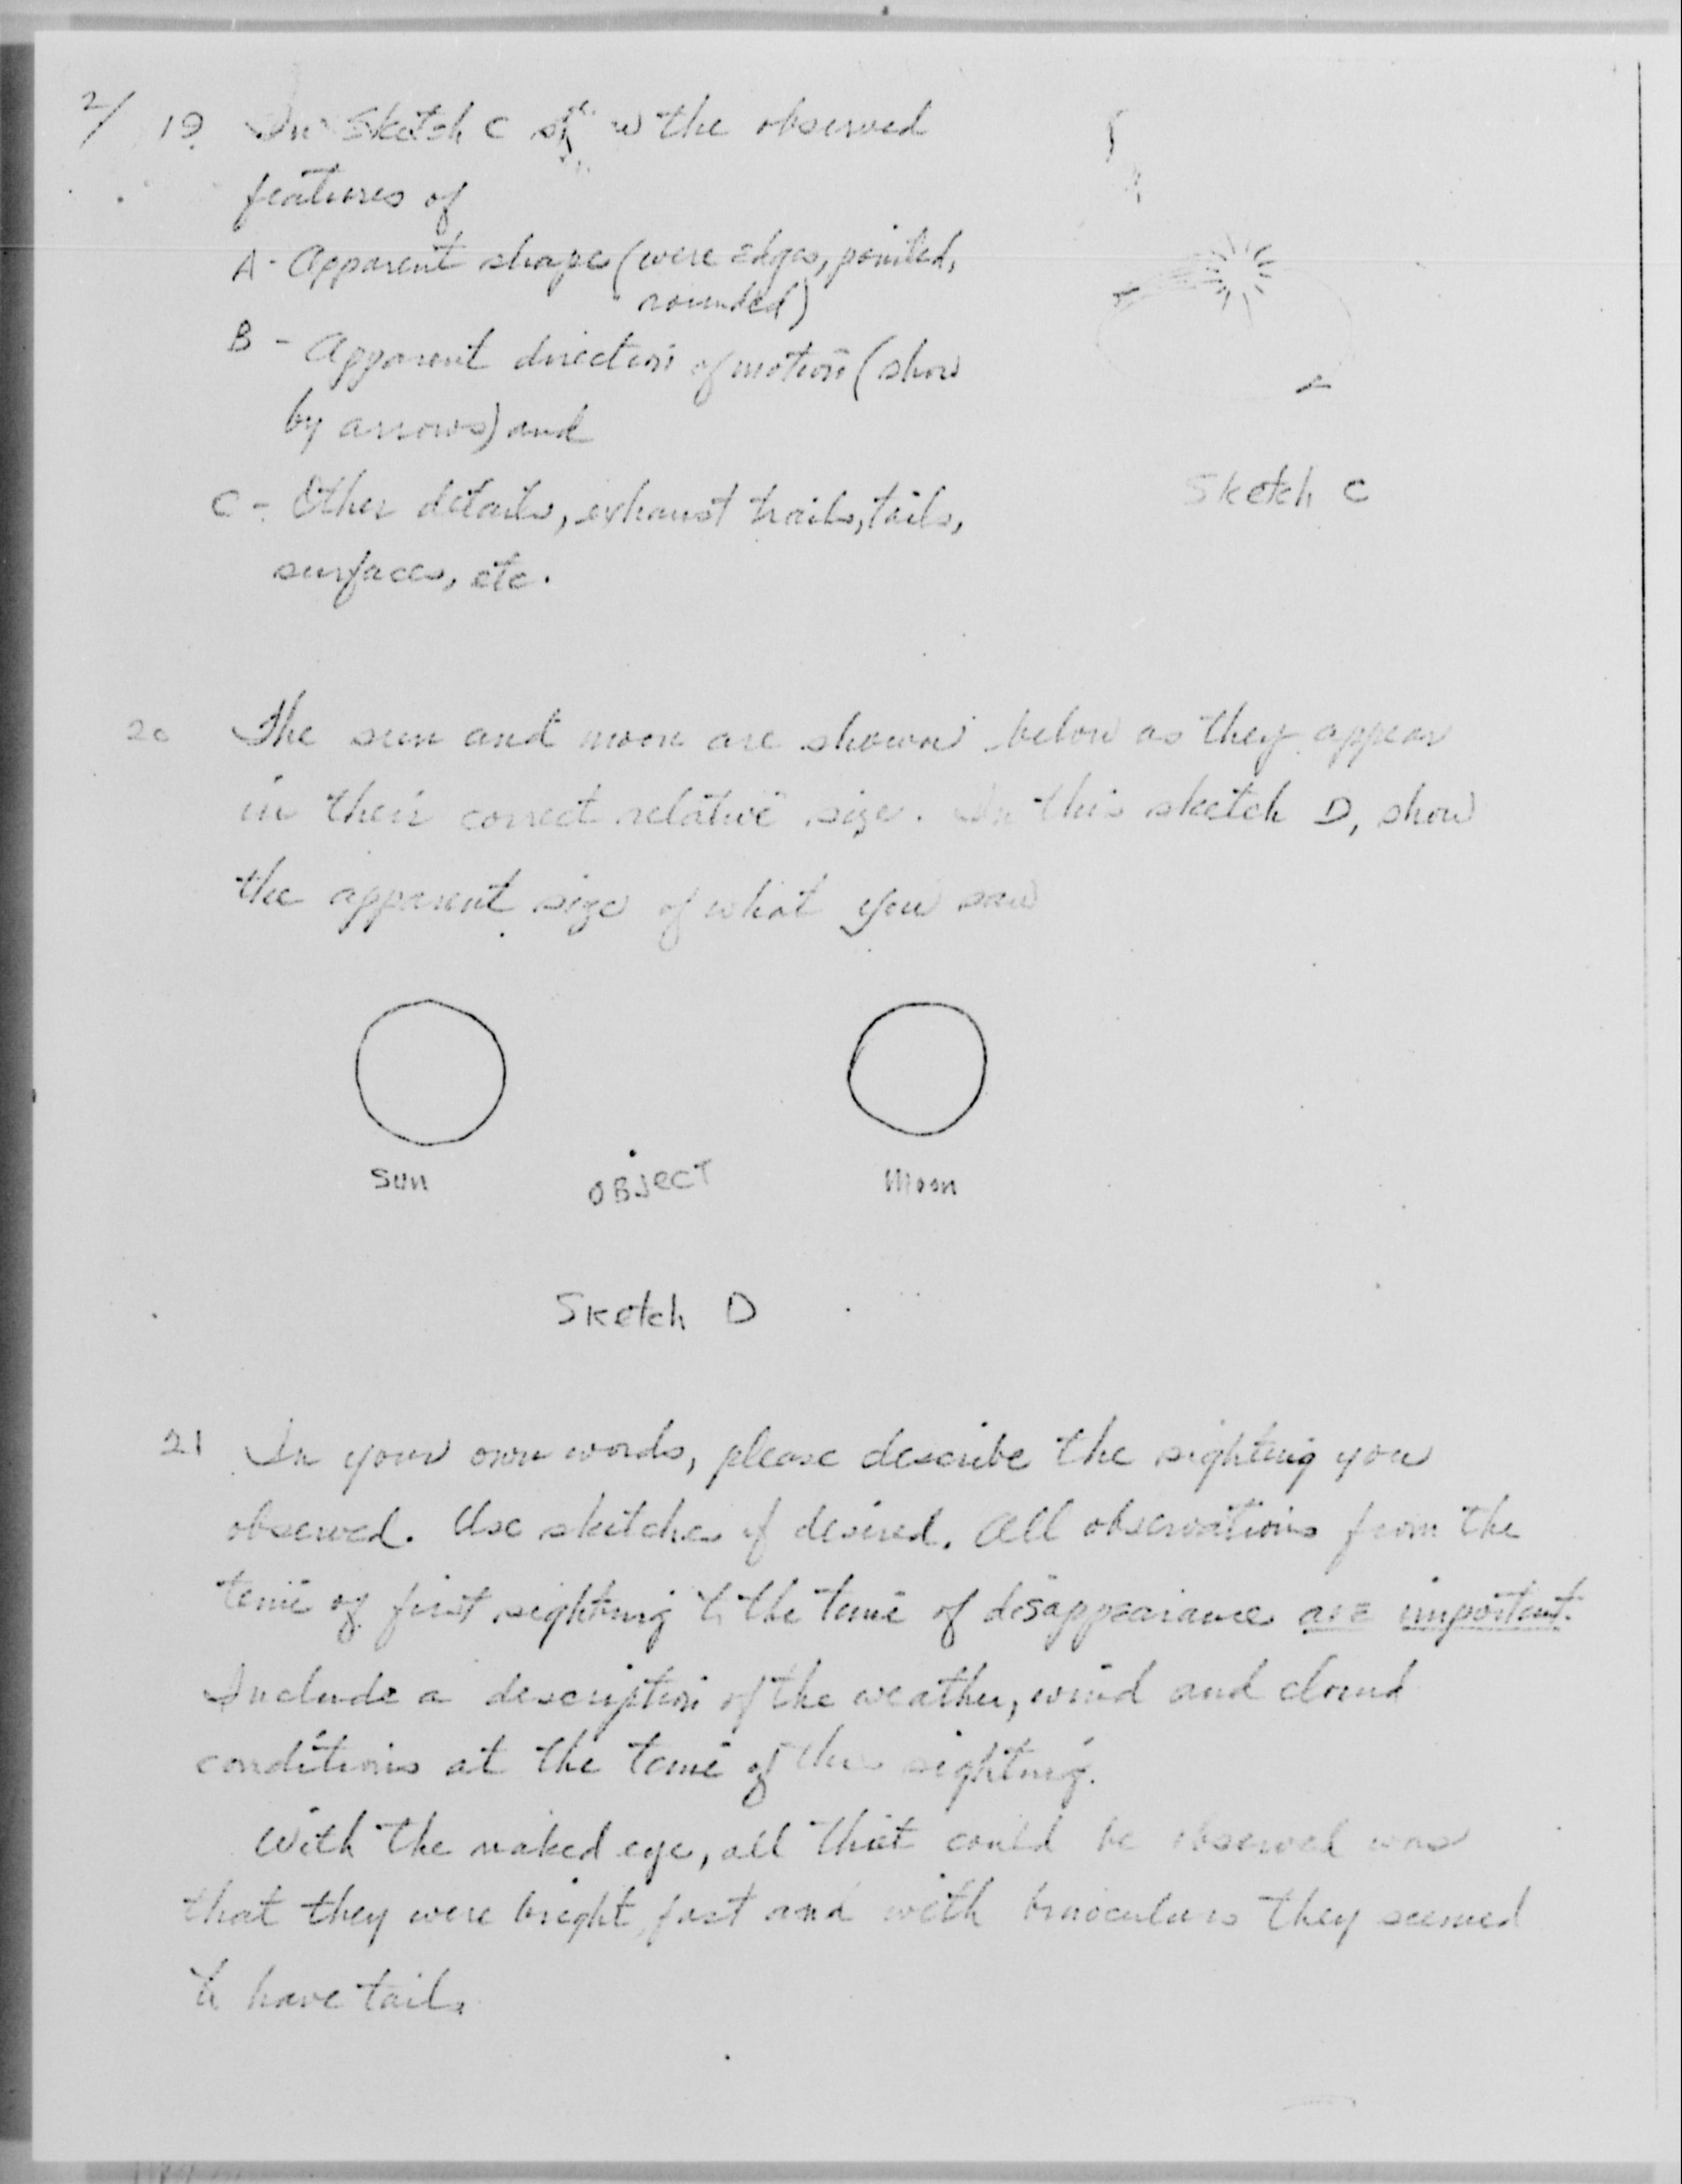 2/ 19. In Sketch C show the observed
features of
A - Apparent shape (were edges, pointed,
rounded)
B - Apparent direction of motion (show
by arrows) and
C - Other details, exhaust trails, tails,
surfaces, etc.
Sketch C
20 The sun and moon are shown below as they appear
in their correct relative size. In this sketch D, show
the apparent size of what you saw
Sun OBJECT Moon
Sketch D
21 In your own words, please describe the sighting you
observed. Use sketches if desired. All observations from the
time of first sighting to the time of disappearance are important.
Include a description of the weather, wind and cloud
conditions at the time of the sighting.
With the naked eye, all that could be observed was
that they were bright, fast and with binoculars they seemed
to have tails.